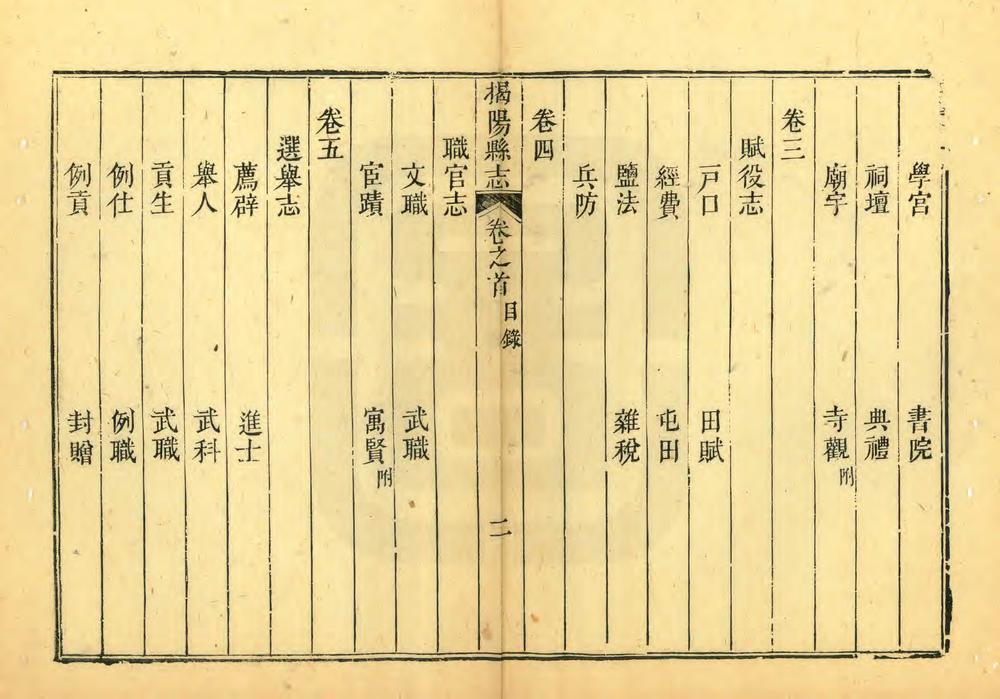 學宮　書院
祠壇　典禮
廟宇　寺觀附
卷三
賦役志
戸口　田賦
經費　屯田
鹽法　雜稅
兵防
卷四
揭陽縣志　卷之首　目錄　二
職官志
文職　武職
宦蹟　寓賢附
卷五
選舉志
薦辟　進士
舉人　武科
貢生　武職
例仕　例職
例貢　封贈